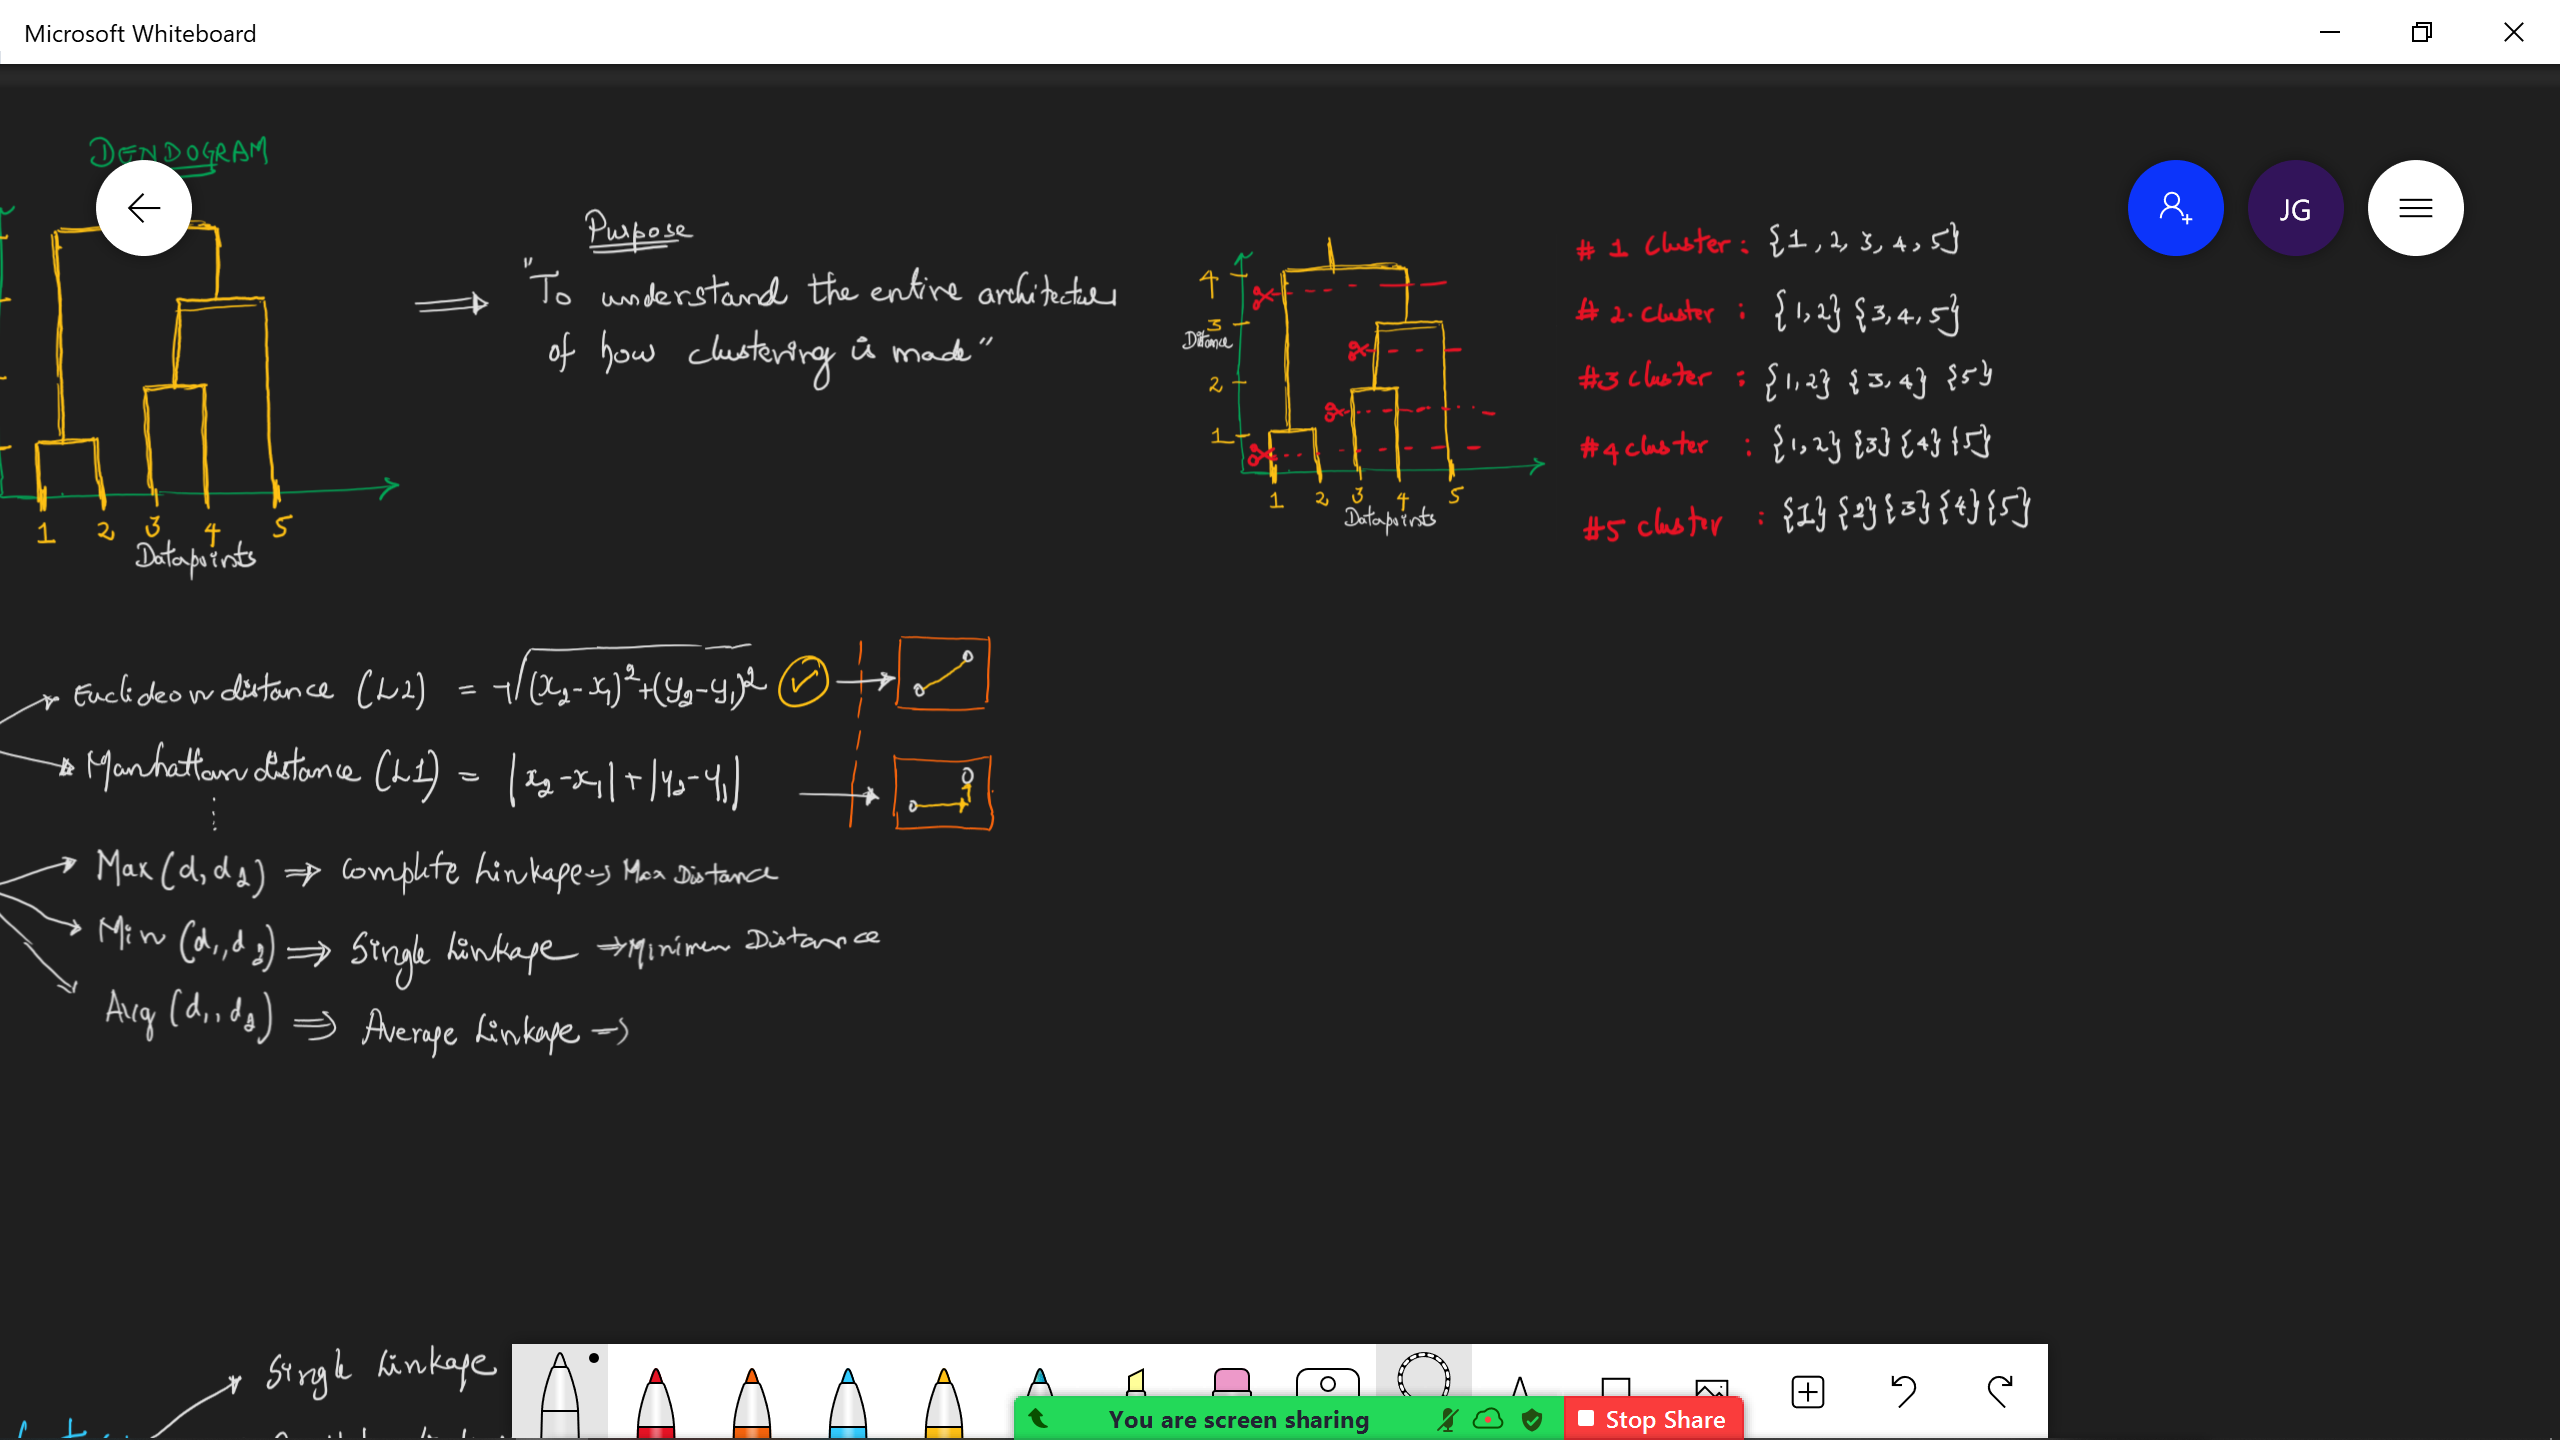 Microsoft Whiteboard
DENDOGRAM
1 2 3 4 5
Datapoints
Purpose
"To understand the entire architecture
of how clustering is made"
4
3
Distance
2
1
1 2 3 4 5
Datapoints
# 1 cluster : {1, 2, 3, 4, 5}
# 2. cluster : {1,2} {3,4,5}
#3 cluster : {1,2} {3,4} {5}
#4 cluster : {1,2} {3} {4} {5}
#5 cluster : {1} {2} {3} {4} {5}
JG
Euclidean distance (L2) = √(x₂-x₁)²+(y₂-y₁)²
Manhattan distance (L1) = |x₂-x₁|+|y₂-y₁|
Max (d, d₂) ⇒ Complete Linkage → Max Distance
Min (d₁, d₂) ⇒ Single Linkage → Minimum Distance
Avg (d₁, d₂) ⇒ Average Linkage →
Single Linkage
You are screen sharing
Stop Share